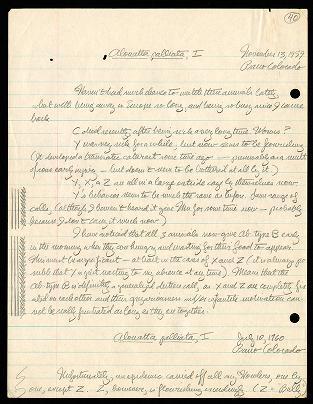 90
Alouatta palliata, I
November 13, 1959
Barro Colorado
Haven't had much chance to watch these animals lately,
what with being away in Europe so long, and being so busy since I came
back.
C died recently, after being sick a very long time. Worms?
Y was very sick for a while, but now seems to be flourishing
(he developed a traumatic cataract some time ago — presumably as a result
of some early injury — but doesn't seem to be bothered at all by it)
Y, X, & Z are all in a large outside cage by themselves now.
Y's behavior seems to be much the same as before. Same range of
calls, (although I haven't heard it give Mm for some time now — probably
because I don't care it much now)
I have noticed that all 3 animals now give Ab-type B early
in the morning when they are hungry and waiting for their food to appear.
This must be significant — at least in the case of X and Z (it is always possible
that Y might reacting to my absence at any time). Means that the
Ab-type B is definitely a generalized distress call, as X and Z are completely fixated
on each other and their gregariousness and/or infantile motivation cannot
be really frustrated as long as they are together.
Alouatta palliata, I
July 10, 1960
Barro Colorado
Unfortunately, an epidemic carried off all my Howlers, one by
one, except Z. Z, however, is flourishing exceedingly (Z = Billy)